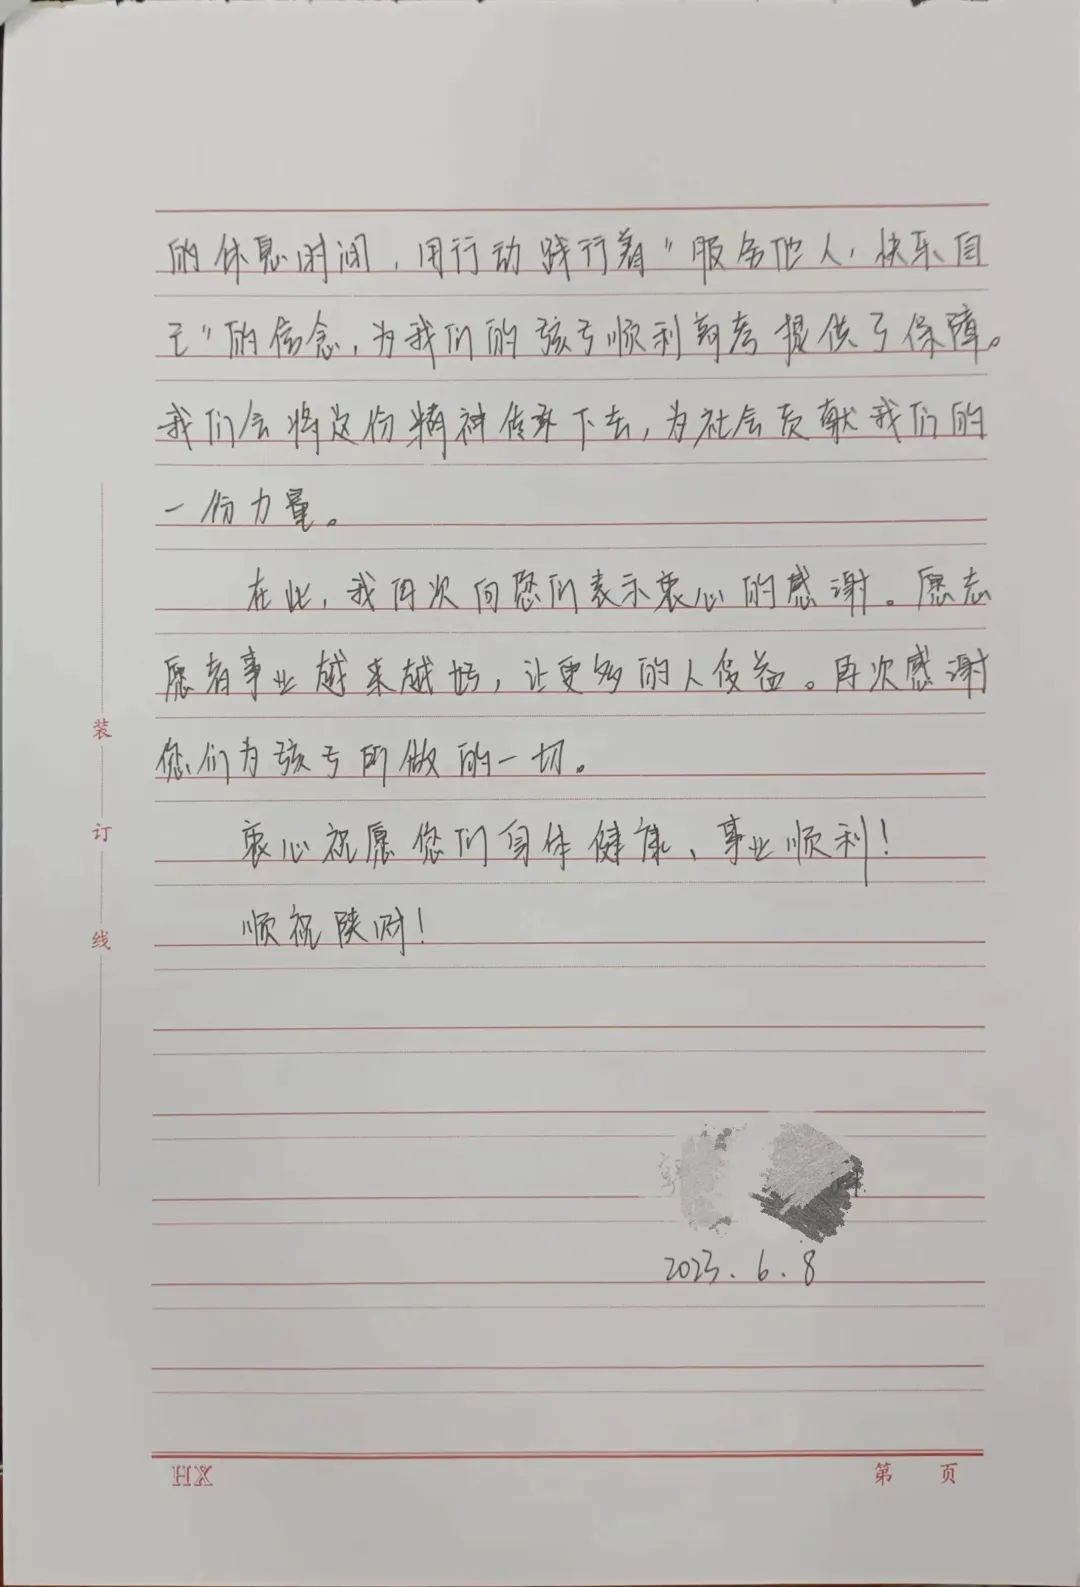 的休息时间，用行动践行着“服务他人，快乐自
己”的信念，为我们的孩子顺利高考提供了保障。
我们会将这份精神传承下去，为社会贡献我们的
一份力量。
在此，我再次向您们表示衷心的感谢。愿志
愿者事业越来越好，让更多的人受益。再次感谢
您们为孩子所做的一切。
衷心祝愿您们身体健康、事业顺利！
顺祝
2023.6.8
装
订
线
HX
第 页